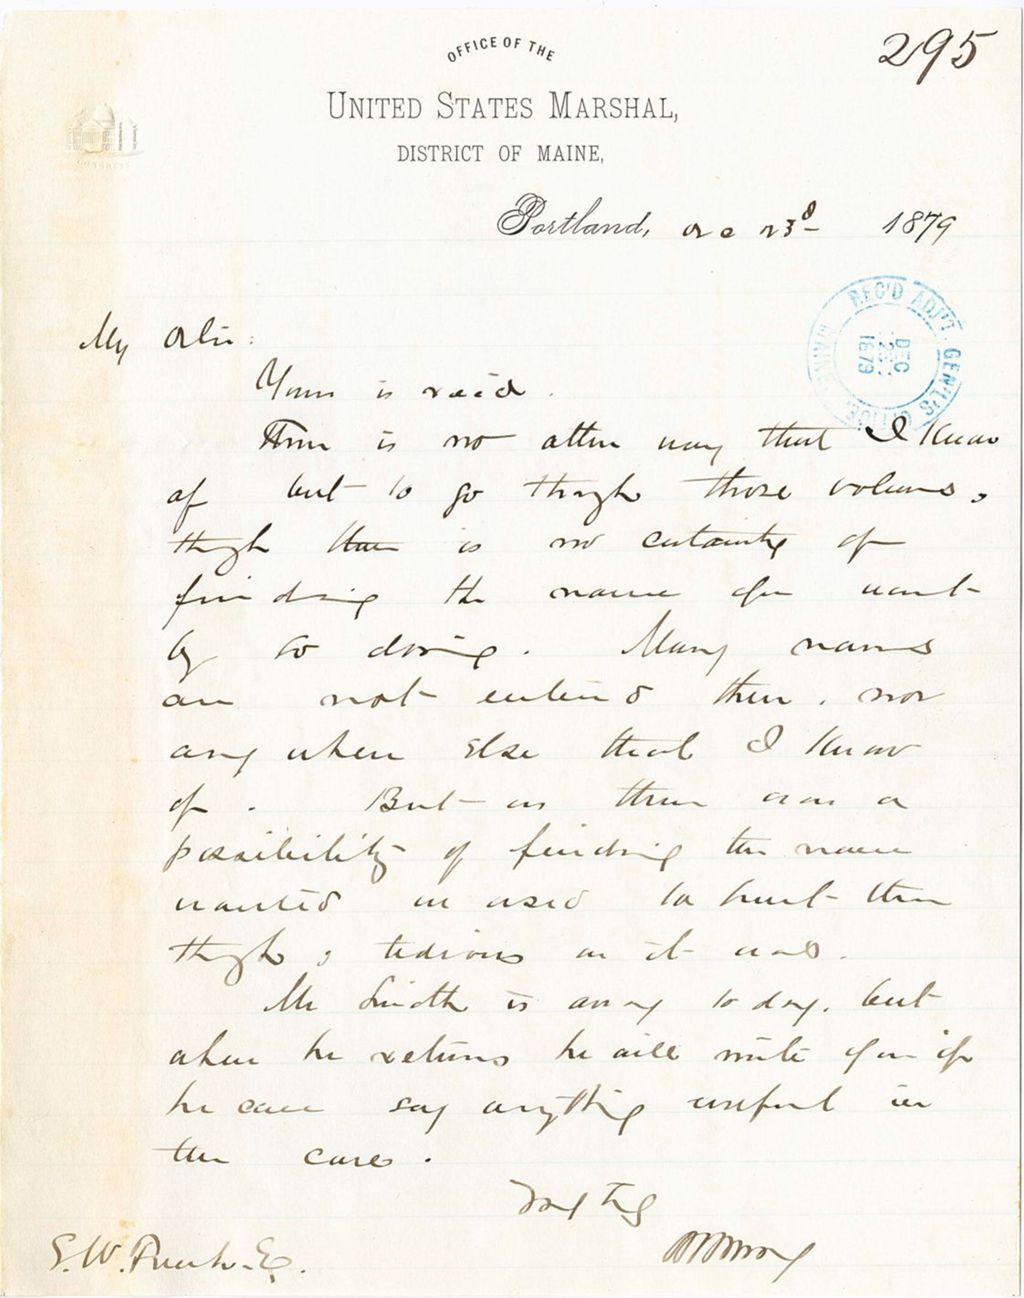 295
OFFICE OF THE
UNITED STATES MARSHAL,
DISTRICT OF MAINE,
Portland, Dec 23d 1879
REC'D ADJ'T GEN'L'S OFFICE MAINE
DEC
1879
My
Yours is rec'd.
There is no other way that I know
of but to go th'gh those volumes,
th'gh there is no certainty of
finding the name you want
by so doing. Many names
are not entered there, nor
any where else that I know
of. But as there was a
possibility of finding the name
wanted we used to hunt them
th'gh, tedious as it was.
Mr Smith is away to day, but
when he returns he will write you if
he can say anything useful in
the case.
Very Try
S. W.